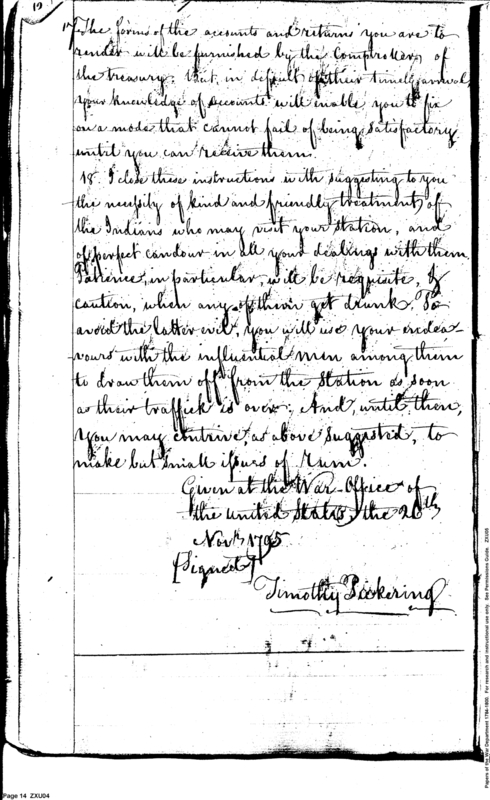 19
17. The forms of the accounts and returns you are to
render will be furnished by the Comptroller of
the treasury; But, in default of their timely arrival,
your knowledge of accounts will enable you to fix
on a mode that cannot fail of being satisfactory
until you can receive them.
18. I close these instructions with suggesting to you
the necessity of kind and friendly treatment of
the Indians who may visit your station, and
of perfect candour in all your dealings with them.
Patience, in particular, will be requisite, &
caution, when any of them get drunk. To
avoid the latter evil, you will use your endea-
vours with the influential men among them
to draw them off from the Station as soon
as their traffick is over; And, until then,
you may contrive, as above suggested, to
make but small issues of Rum.
Given at the War-Office of
the United States, the 26th
Novr. 1795
[Signed]
Timothy Pickering
Page 14 ZXU04
Papers of the War Department 1784-1800. For research and instructional use only. See Permissions Guide. ZXU05